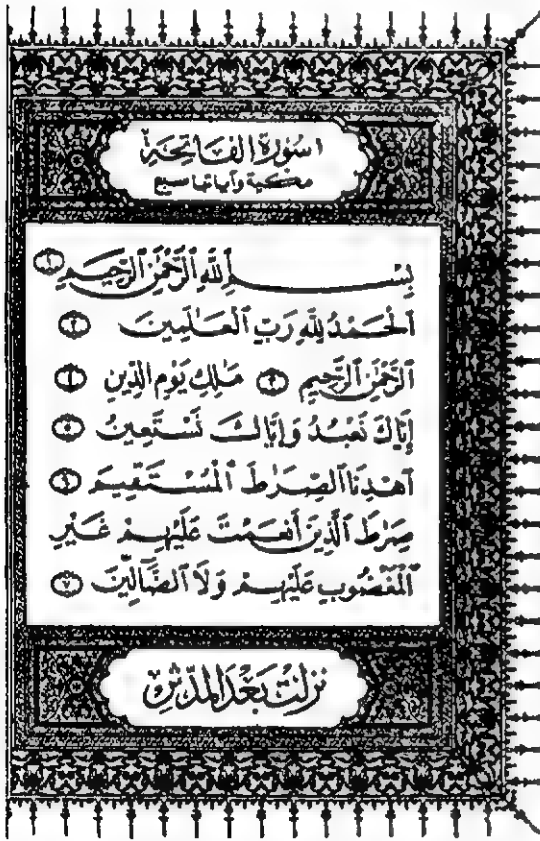 ١ سُورَةُ الفَاتِحَةِ
مكية وآياتها سبع
بِسْمِ ٱللَّهِ ٱلرَّحْمَٰنِ ٱلرَّحِيمِ ١
ٱلْحَمْدُ لِلَّهِ رَبِّ ٱلْعَٰلَمِينَ ٢
ٱلرَّحْمَٰنِ ٱلرَّحِيمِ ٣ مَٰلِكِ يَوْمِ ٱلدِّينِ ٤
إِيَّاكَ نَعْبُدُ وَإِيَّاكَ نَسْتَعِينُ ٥
ٱهْدِنَا ٱلصِّرَٰطَ ٱلْمُسْتَقِيمَ ٦
صِرَٰطَ ٱلَّذِينَ أَنْعَمْتَ عَلَيْهِمْ غَيْرِ
ٱلْمَغْضُوبِ عَلَيْهِمْ وَلَا ٱلضَّآلِّينَ ٧
نزلت بَعْدَ المدّثر